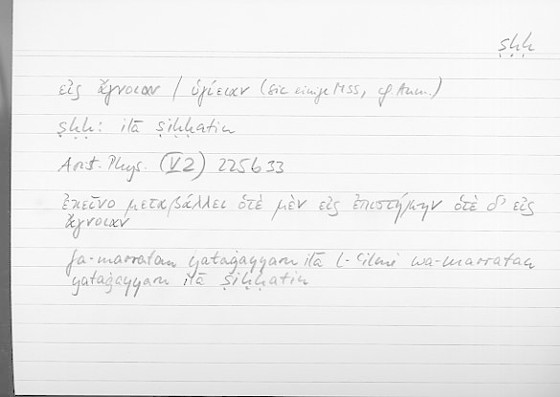 ṣḥḥ
εἰς ἄγνοιαν / ὑγίειαν (sic einige MSS, cf. Anm.)
ṣḥḥ: ilā ṣiḥḥatin
Arist. Phys. (V 2) 225b33
ἐκεῖνο μεταβάλλει ὁτὲ μὲν εἰς ἐπιστήμην ὁτὲ δ' εἰς
ἄγνοιαν
fa-marratan yataġayyaru ilā l-ʿilmi wa-marratan
yataġayyaru ilā ṣiḥḥatin